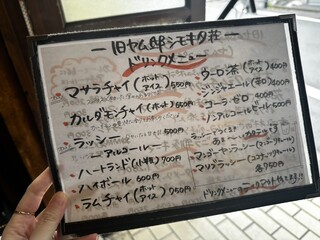 旧ヤム邸シモキタ荘
ドリンクメニュー
マサラチャイ(ホット アイス) 500円
カルダモンチャイ(ホット
ラッシー 500円
アルコール
ハートランド(小瓶) 700円
ハイボール 600円
ラムチャイ(ホット アイス) 750円
ウーロン茶(ホット アイス) 400円
ジンジャエール(辛口) 400円
コーラゼロ 400円
ノンアルコールビール 500円
マンゴーヤシラッシー
マリブラッシー(ココナッツリキュール)
各750円
ドリンクメニューテイクアウト